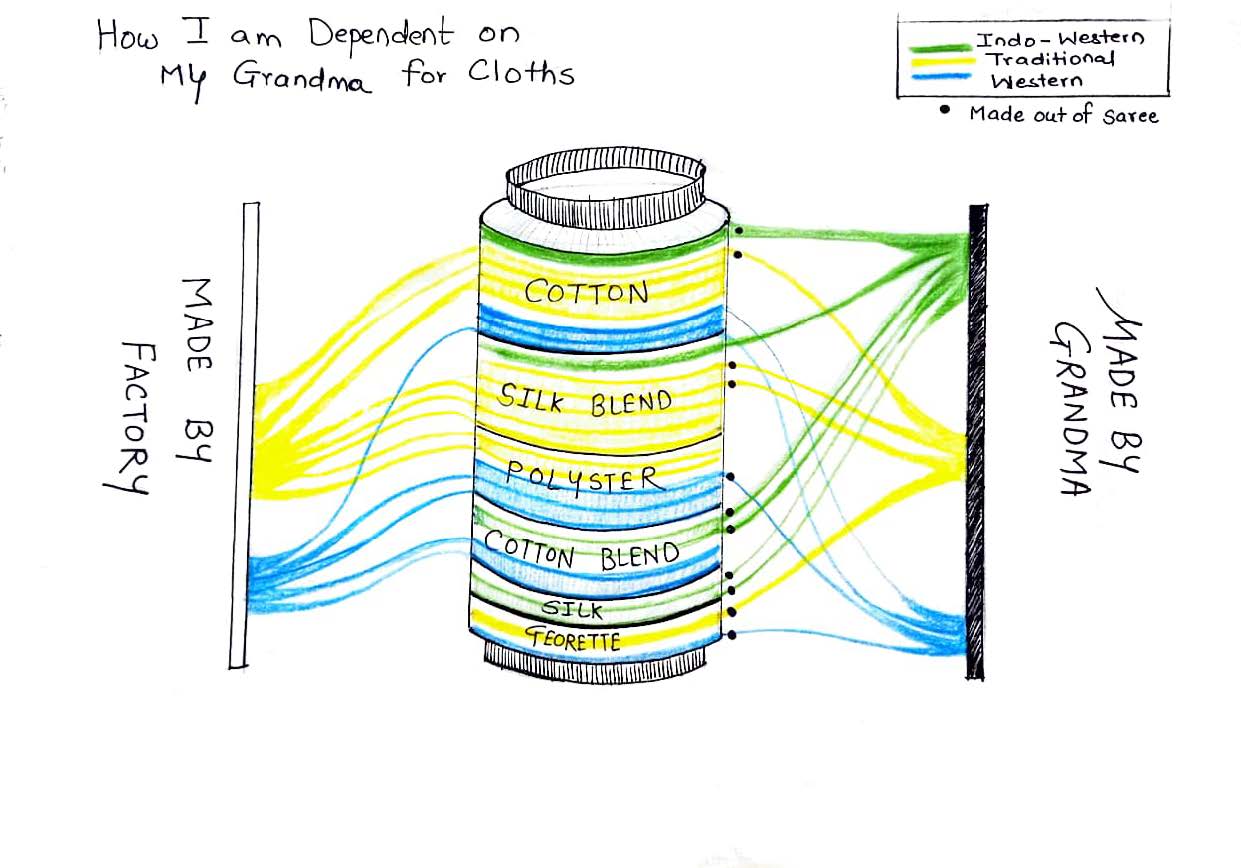 How I am Dependent on
My Grandma for Cloths
Indo-Western
Traditional
Western
Made out of saree
MADE BY
FACTORY
COTTON
SILK BLEND
POLYSTER
COTTON BLEND
SILK
GEORETTE
MADE BY
GRANDMA